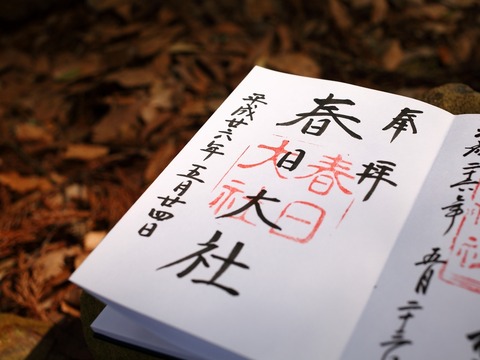 奉拝
春日大社
春日
大社
平成廿六年五月廿四日
五月二十三